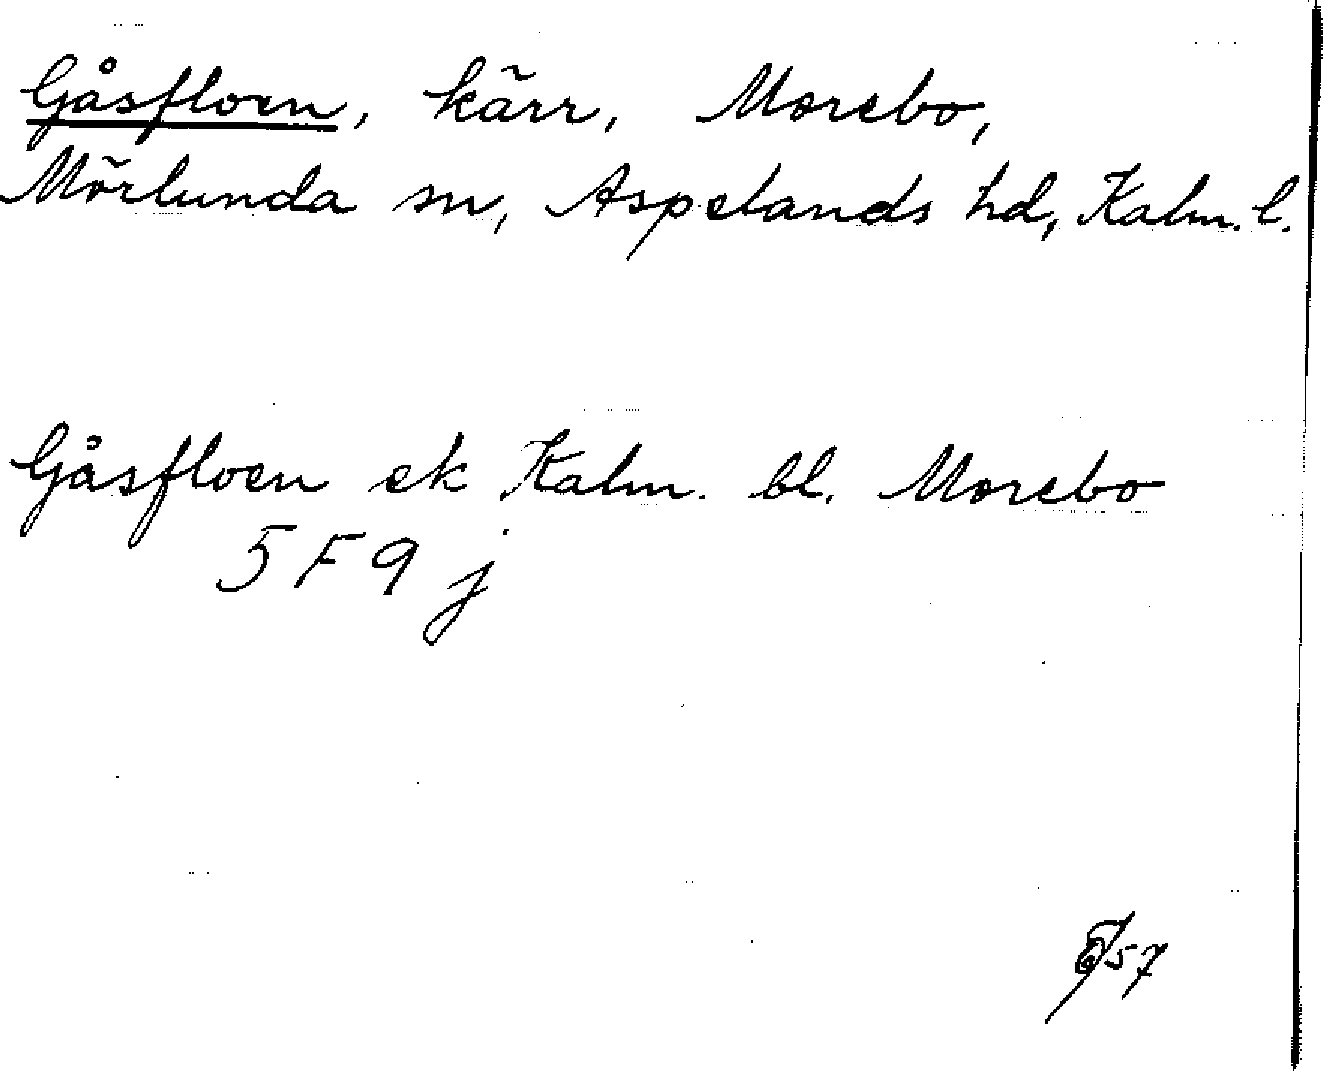 Gåsfloen, kärr, Morebo,
Mörlunda sn, Aspelands hd, Kalm. l.
Gåsfloen ek Kalm. bl. Morebo
5 F 9 j